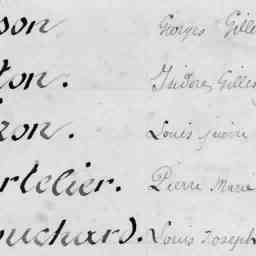 son Georges Gille
ton. Isidore Gilles
zon. Louis
rtelier. Pierre Marie
ouchard. Louis Joseph